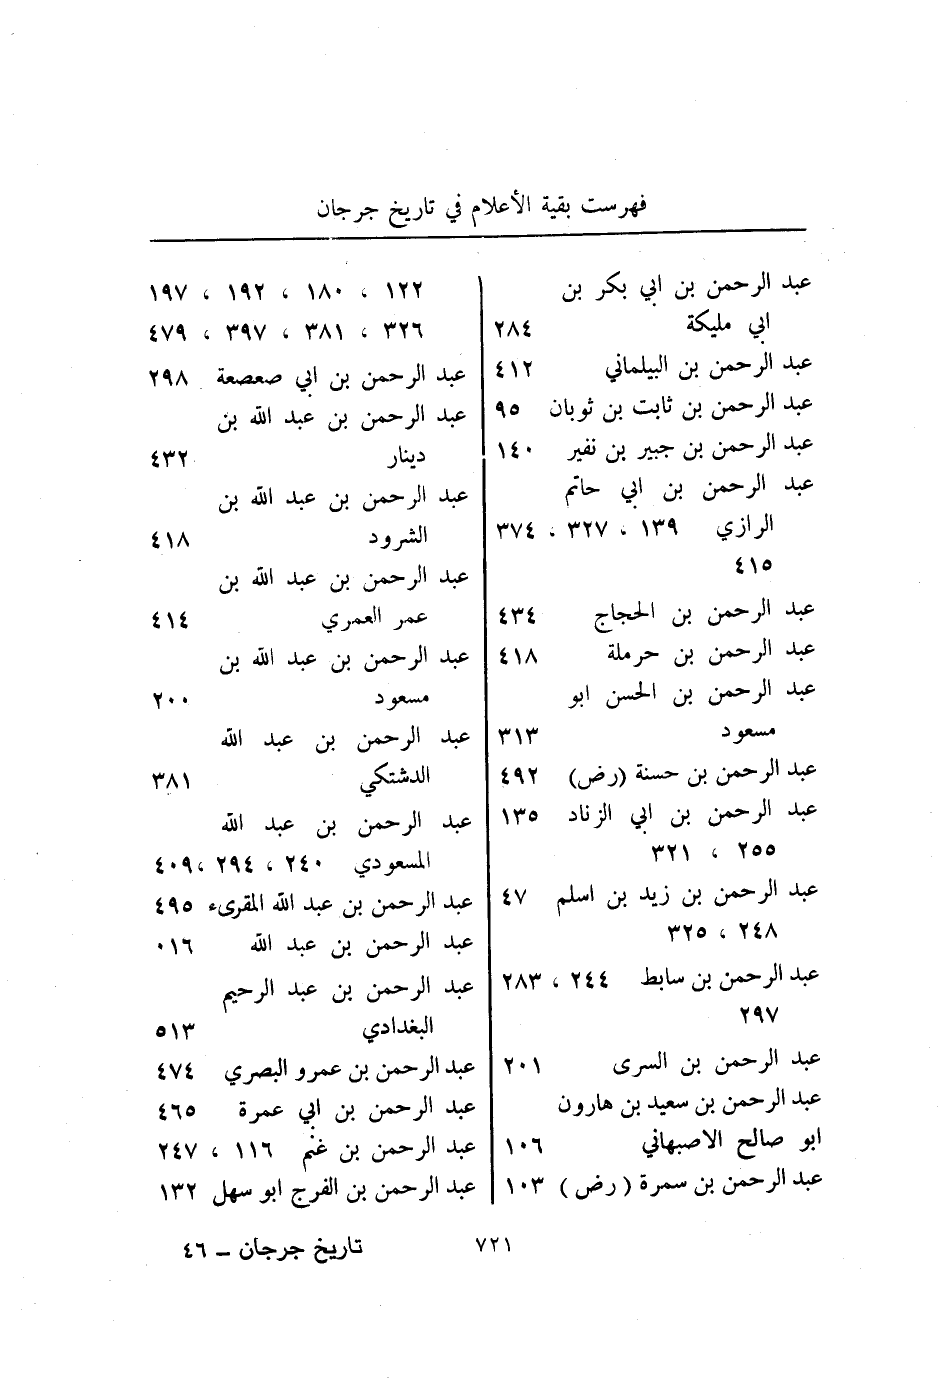 فهرست بقية الأعلام في تاريخ جرجان
عبد الرحمن بن ابي بكر بن
ابي مليكة ٢٨٤
عبد الرحمن بن البيلماني ٤١٢
عبد الرحمن بن ثابت بن ثوبان ٩٥
عبد الرحمن بن جبير بن نفير ١٤٠
عبد الرحمن بن ابي حاتم
الرازي ١٣٩ ، ٣٢٧ ، ٣٧٤
٤١٥
عبد الرحمن بن الحجاج ٤٣٤
عبد الرحمن بن حرملة ٤١٨
عبد الرحمن بن الحسن ابو
مسعود ٣١٣
عبد الرحمن بن حسنة (رض) ٤٩٢
عبد الرحمن بن ابي الزناد ١٣٥
٢٥٥ ، ٣٢١
عبد الرحمن بن زيد بن اسلم ٤٧
٢٤٨ ، ٣٢٥
عبد الرحمن بن سابط ٢٤٤ ، ٢٨٣
٢٩٧
عبد الرحمن بن السرى ٢٠١
عبد الرحمن بن سعيد بن هارون
ابو صالح الاصبهاني ١٠٦
عبد الرحمن بن سمرة ( رض ) ١٠٣
١٢٢ ، ١٨٠ ، ١٩٢ ، ١٩٧
٣٢٦ ، ٣٨١ ، ٣٩٧ ، ٤٧٩
عبد الرحمن بن ابي صعصعة ٢٩٨
عبد الرحمن بن عبد الله بن
دينار ٤٣٢
عبد الرحمن بن عبد الله بن
الشرود ٤١٨
عبد الرحمن بن عبد الله بن
عمر العمري ٤١٤
عبد الرحمن بن عبد الله بن
مسعود ٢٠٠
عبد الرحمن بن عبد الله
الدشتكي ٣٨١
عبد الرحمن بن عبد الله
المسعودي ٢٤٠ ، ٢٩٤ ،٤٠٩
عبد الرحمن بن عبد الله المقرىء ٤٩٥
عبد الرحمن بن عبد الله ٠١٦
عبد الرحمن بن عبد الرحيم
البغدادي ٥١٣
عبد الرحمن بن عمرو البصري ٤٧٤
عبد الرحمن بن ابي عمرة ٤٦٥
عبد الرحمن بن غنم ١١٦ ، ٢٤٧
عبد الرحمن بن الفرج ابو سهل ١٣٢
٧٢١
تاريخ جرجان – ٤٦